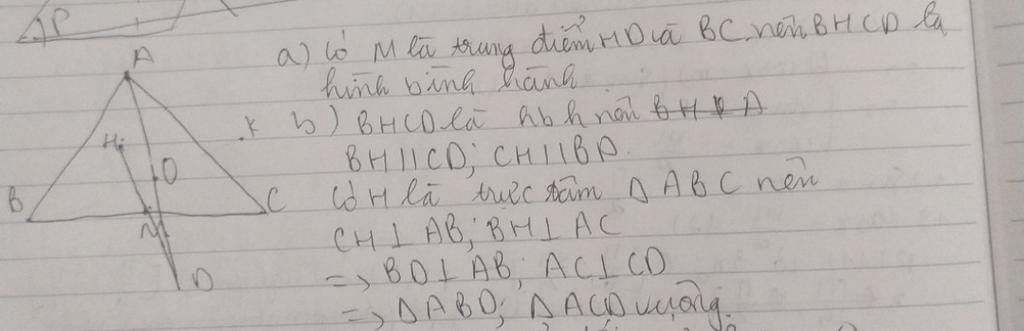 P
A
a) Có M là trung điểm HD và BC nên BHCD là
hình bình hành
b) BHCD là hbh nên
H
BH // CD; CH // BD.
O
B
C
Có H là trực tâm Δ ABC nên
M
CH ⊥ AB; BH ⊥ AC
D
=> BD ⊥ AB; AC ⊥ CD
=> Δ ABD; Δ ACD vuông.